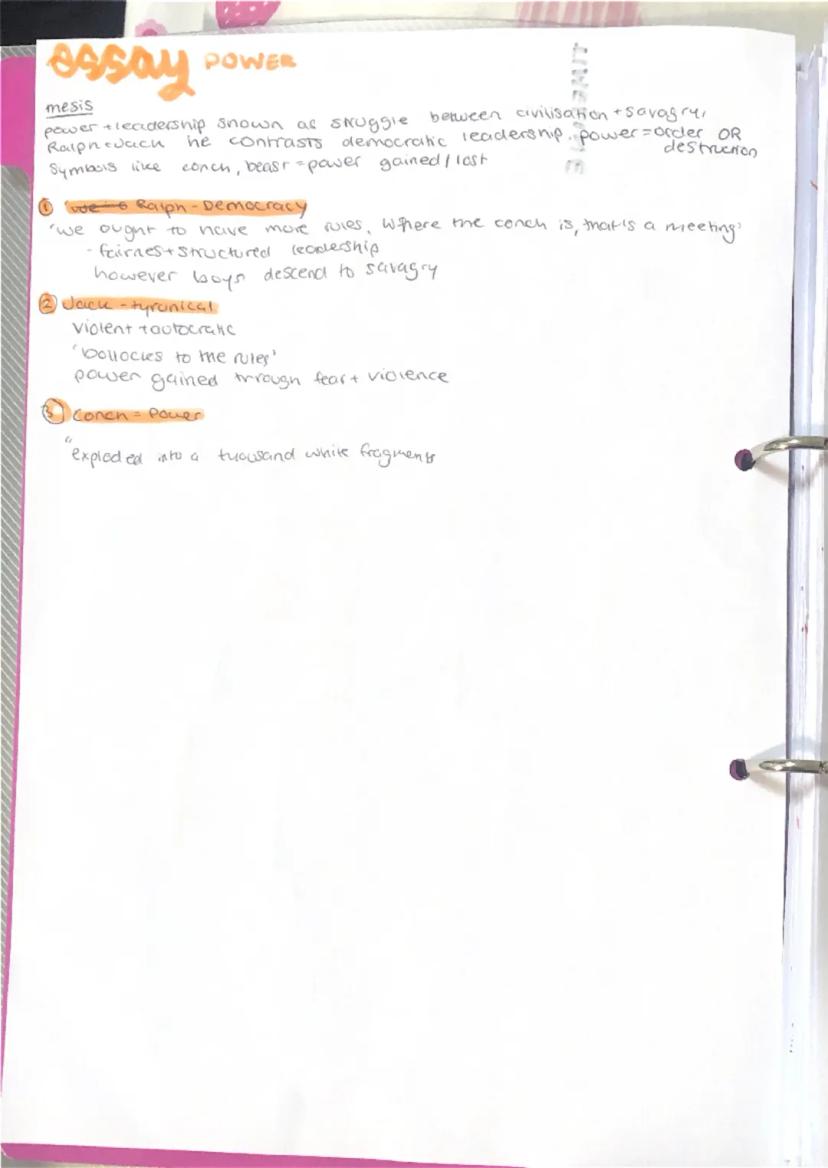 essay POWER
thesis
power + leadership shown as struggle between civilisation + savagry,
Ralph + Jack he contrasts democratic leadership. power = order OR
destruction
Symbols like conch, beast = power gained / lost
① Ralph - Democracy
'we ought to have more rules. Where the conch is, that's a meeting'
- fairnes + structured leadership
however boys descend to savagry
② Jack - tyrunical
violent + autocratic
'bollocks to the rules'
power gained through fear + violence
③ Conch = Power
"exploded into a thousand white fragments